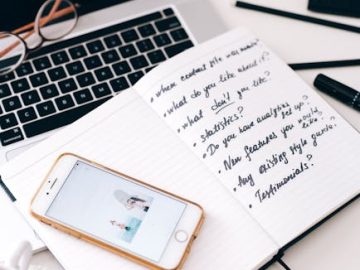 Where contact file with
• what do you like about?
• what don't you like?
• statistics?
• Do you have analytics?
• New features you would like?
• Any existing style guide?
• Testimonials?